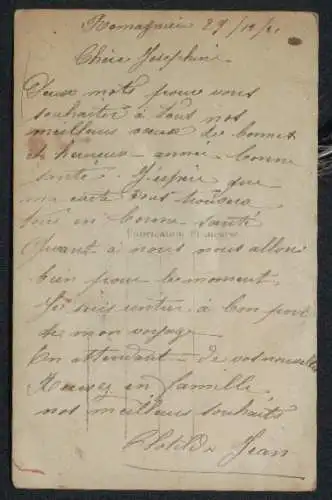 Romagnieu 29/12/21
Chère Joséphine
Deux mots pour vous
souhaiter à tous nos
meilleurs vœux de bonnes
et heureuse année bonne
santé. J'espère que
ma carte vous trouvera
tous en bonne santé
Fabrication Française
Quant à nous nous allons
bien pour le moment.
Je suis rentier à bon port
de mon voyage
En attendant de vos nouvelles
Recevez en famille
nos meilleurs souhaits
Clotilde Jean